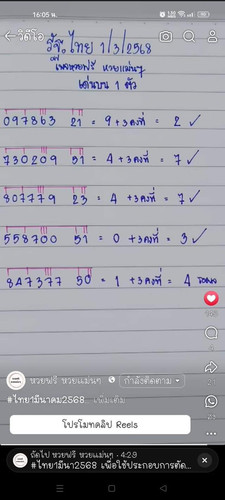 16:05 น.
วิดีโอ
วิธี ไทย 1/3/2568
เพจหวยฟรี หวยแม่นๆ
เด่นบน 1 ตัว
097863 21 = 9 +3คงที่ = 2 ✓
730209 51 = 4 +3คงที่ = 7 ✓
807779 23 = 4 +3คงที่ = 7 ✓
558700 51 = 0 +3คงที่ = 3 ✓
847377 50 = 1 +3คงที่ = 4
หวยฟรี หวยแม่นๆ กำลังติดตาม
#ไทย1มีนาคม2568. เพิ่มเติม
โปรโมทคลิป Reels
ถัดไป หวยฟรี หวยแม่นๆ · 4:29
#ไทย1มีนา2568 เพื่อใช้ประกอบการตัด...